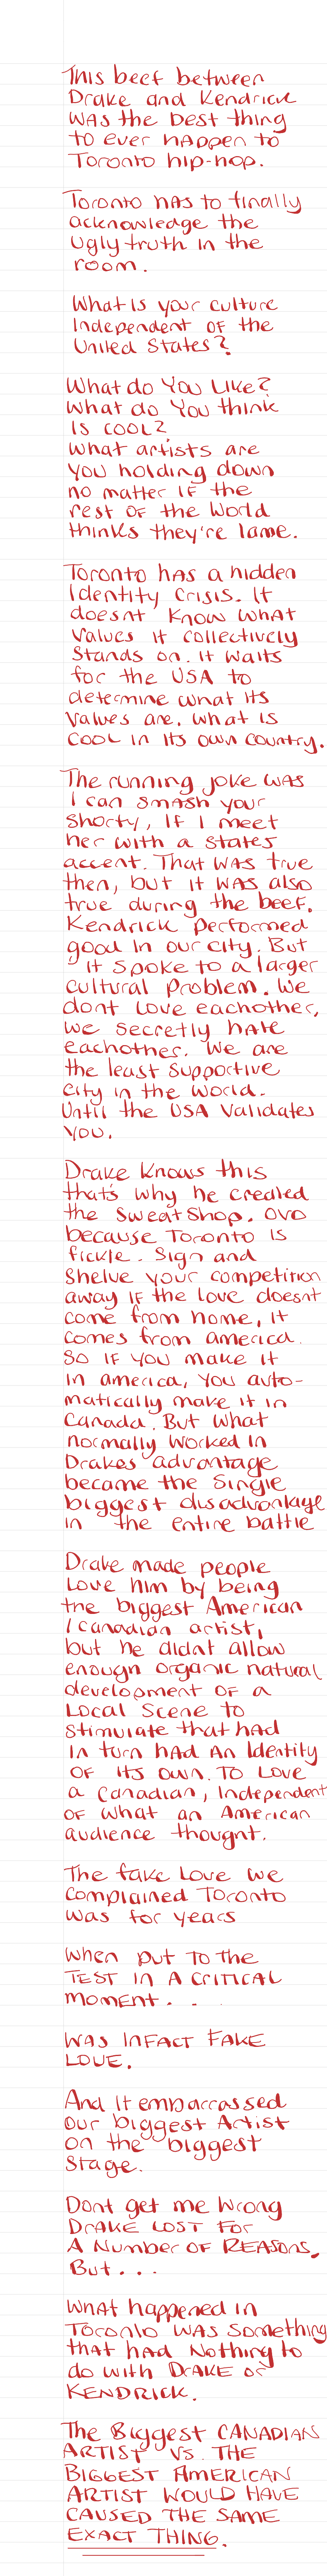 This beef between
Drake and Kendrick
was the best thing
to ever happen to
Toronto hip-hop.
Toronto has to finally
acknowledge the
ugly truth in the
room.
What is your culture
Independent of the
United States?
What do you like?
What do you think
is cool?
What artists are
you holding down
no matter if the
rest of the world
thinks they're lame.
Toronto has a hidden
Identity crisis. It
doesnt know what
values it collectively
stands on. It waits
for the USA to
determine what its
values are. What is
cool in its own country.
The running joke was
I can smash your
shorty, if I meet
her with a states
accent. That was true
then, but it was also
true during the beef.
Kendrick performed
good in our city. But
it spoke to a larger
cultural problem. We
dont love eachother,
we secretly hate
eachother. We are
the least supportive
city in the world.
Until the USA validates
you.
Drake knows this
that's why he created
the sweatshop. OVO
because Toronto is
fickle. Sign and
shelve your competition
away if the love doesnt
come from home, it
comes from america.
So if you make it
in america, you auto-
matically make it in
Canada. But what
normally worked in
Drakes advantage
became the single
biggest disadvantage
in the entire battle
Drake made people
love him by being
the biggest American
/ canadian artist,
but he didnt allow
enough organic natural
development of a
local scene to
stimulate that had
in turn had an identity
of its own. To love
a Canadian, Independent
of what an American
audience thought.
The fake love we
complained Toronto
was for years
When put to the
TEST in a critical
moment. . . .
Was infact FAKE
LOVE.
And it embarrassed
our biggest Artist
on the biggest
stage.
Dont get me wrong
DRAKE LOST FOR
A Number of REASONS.
But . . .
What happened in
Toronto was something
that had Nothing to
do with DRAKE or
KENDRICK.
The Biggest CANADIAN
ARTIST VS. THE
BIGGEST AMERICAN
ARTIST WOULD HAVE
CAUSED THE SAME
EXACT THING.